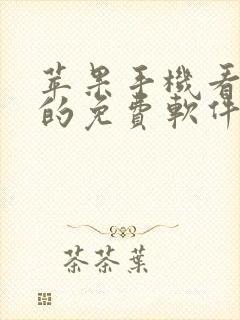 苹果手機看
的免費軟件
茶茶葉